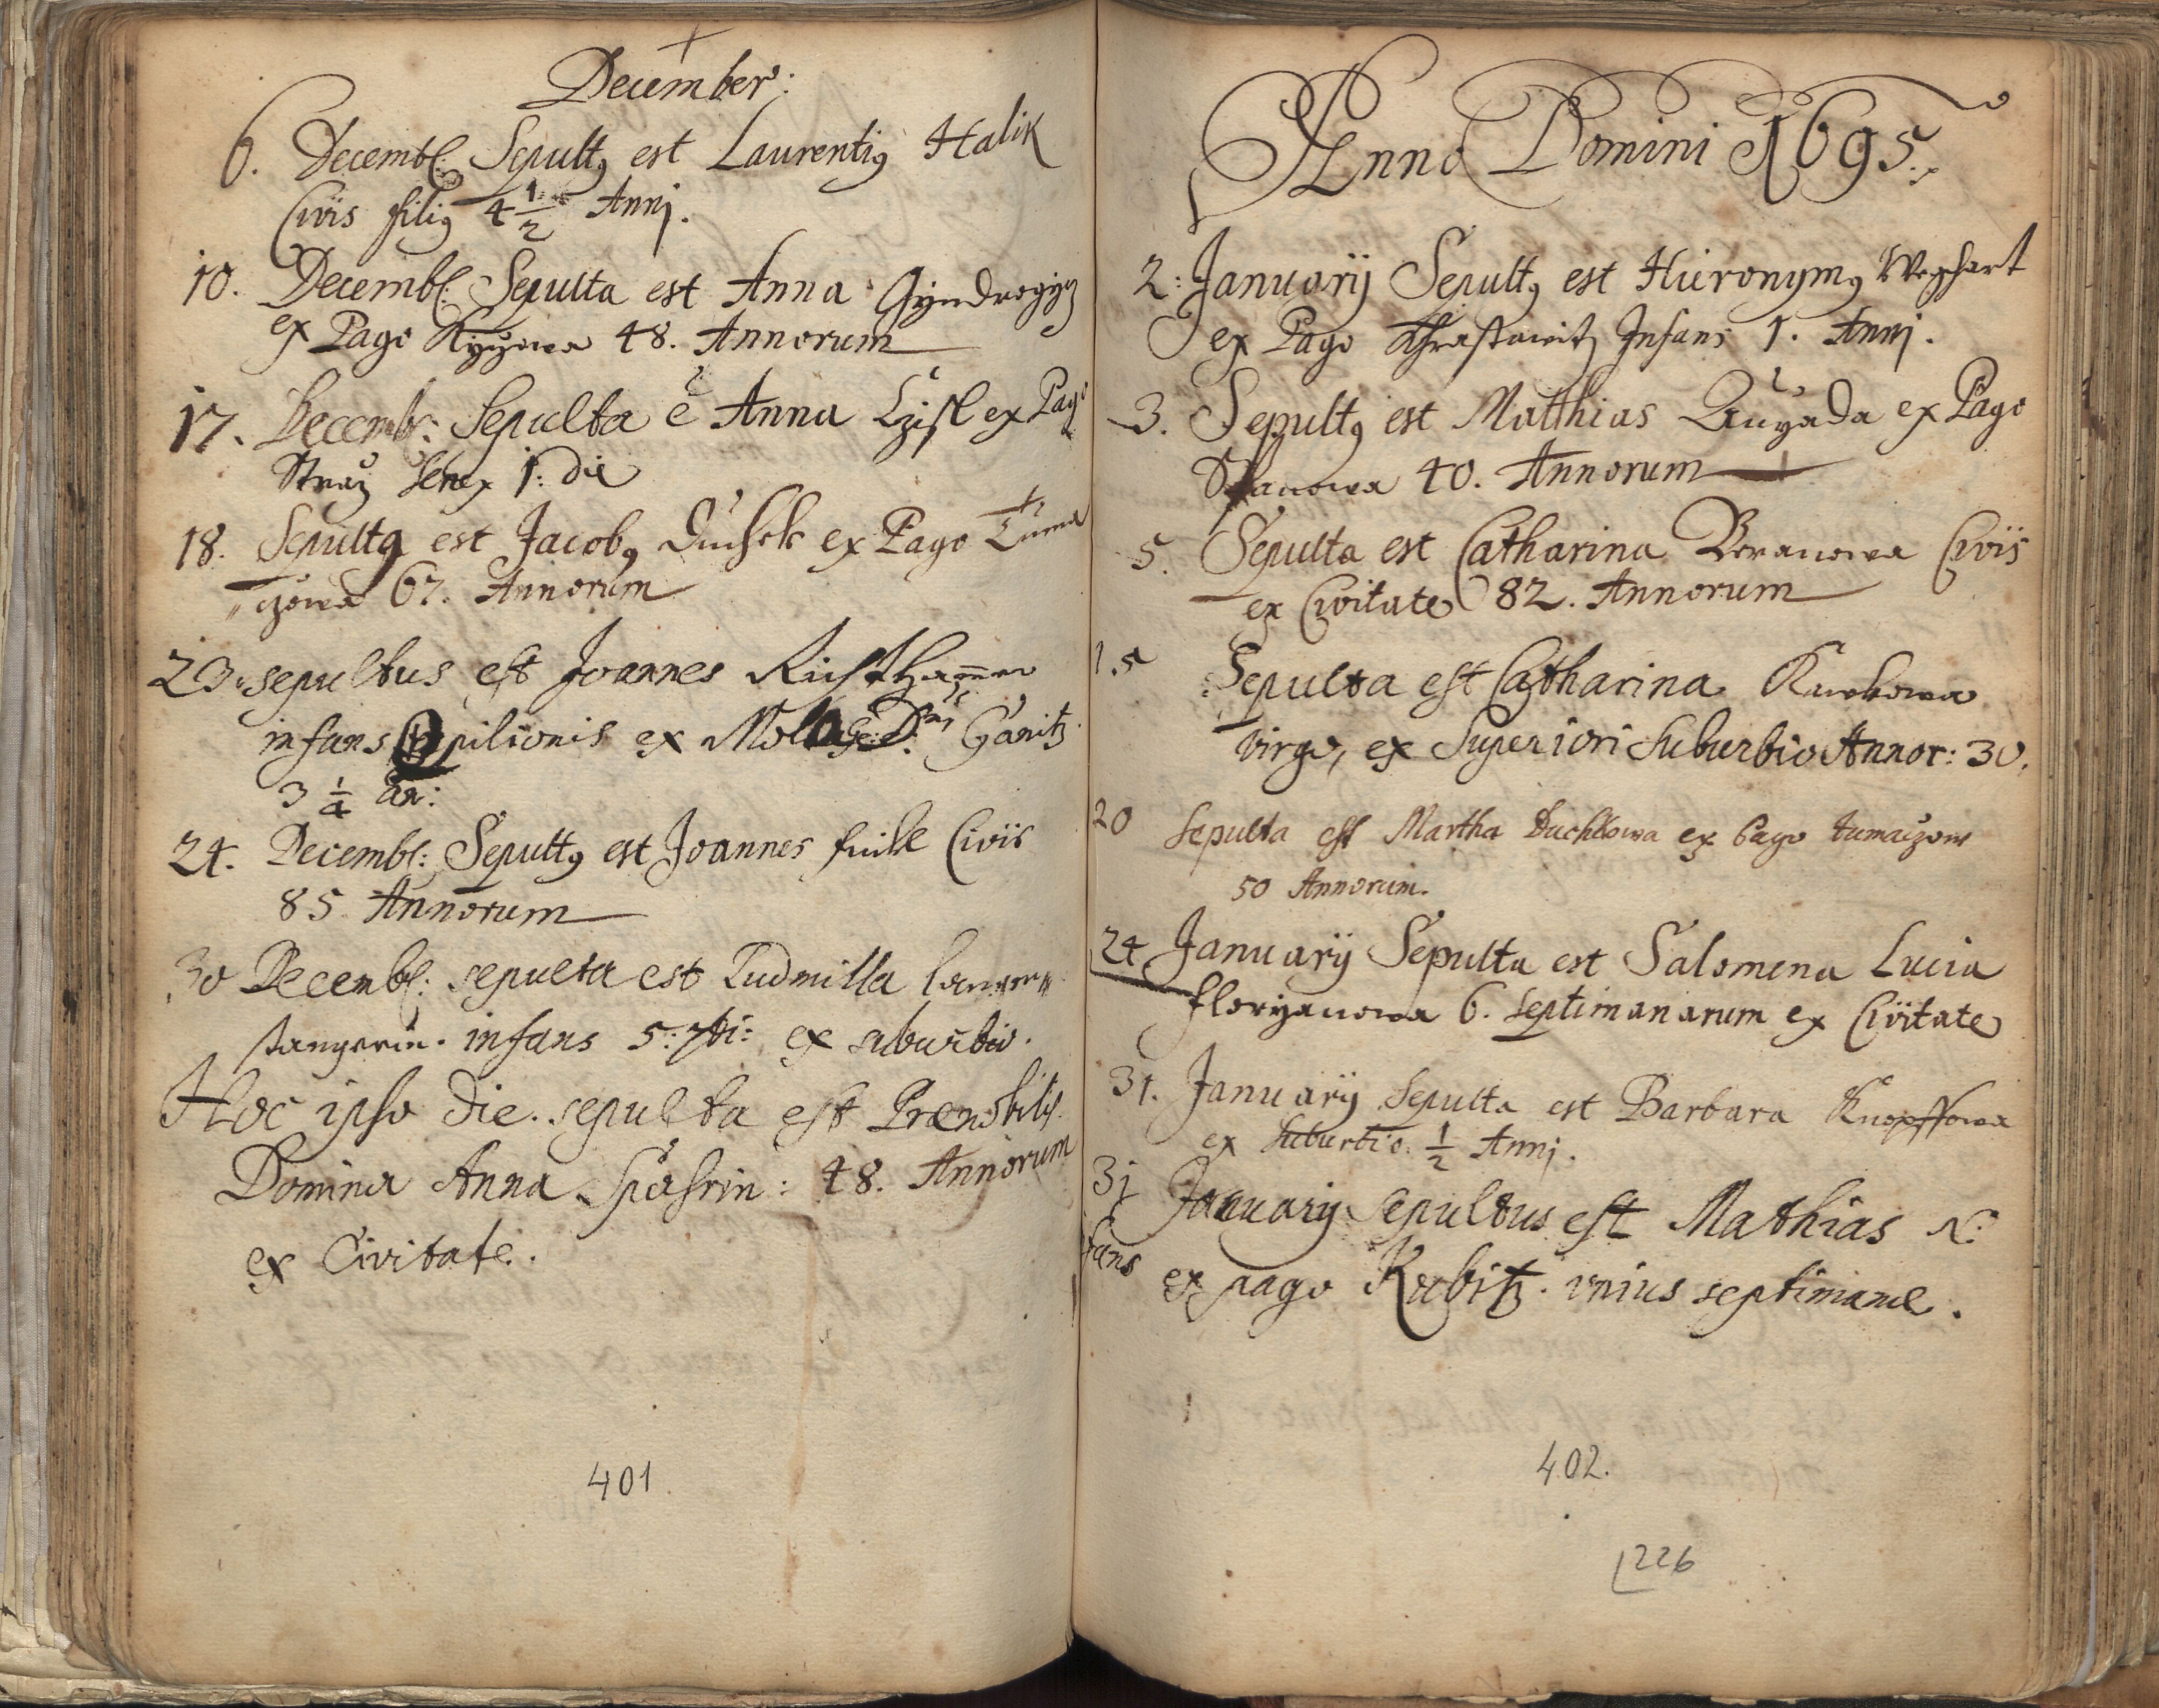 December:
6. Decemb: Sepultꝯ est Laurentiꝯ Halik
Civis filiꝯ 4 1/2 Annj.
10. Decemb: Sepulta est Anna
ex Pago 48. Annorum
17. Decemb: Sepulta ē Anna ex Pago
Straz 1: die
18. Sepultꝯ est Jacobꝯ Duchek ex Pago Tuma
czowa 67. Annorum
23. sepultus est Joannes
infans opilionis ex
3 1/4 an:
24. Decemb: Sepultꝯ est Joannes Civis
85 Annorum
30 Decemb: sepulta est Ludmilla
infans 5: ex suburbio.
Hoc ipso die sepulta est Prænobilis
Domina Anna 48. Annorum
ex Civitate.
401
Anno Domini 1695.
2: Januarij Sepultꝯ est Hieronymꝯ
ex Pago Chrastawitz Infans 1. Annj.
3. Sepultꝯ est Matthias ex Pago
40. Annorum
5. Sepulta est Catharina Beranowa Civis
ex Civitate 82. Annorum
15 Sepulta est Catharina Kurkowa
virgo, ex Superiori Suburbio Annor: 30.
20 Sepulta est Martha Duchkowa ex Pago tumaczow
50 Annorum.
24 Januarij Sepulta est Salomena Lucia
Floryanowa 6. septimanarum ex Civitate
31. Januarij Sepulta est Barbara Knopffowa
ex Suburbio 1/2 Annj.
31 Januarij sepultus est Mathias N:
fans ex pago Kubitz. unius septimanæ.
402.
226